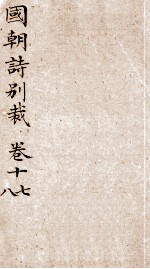 國朝詩別裁 卷十七八